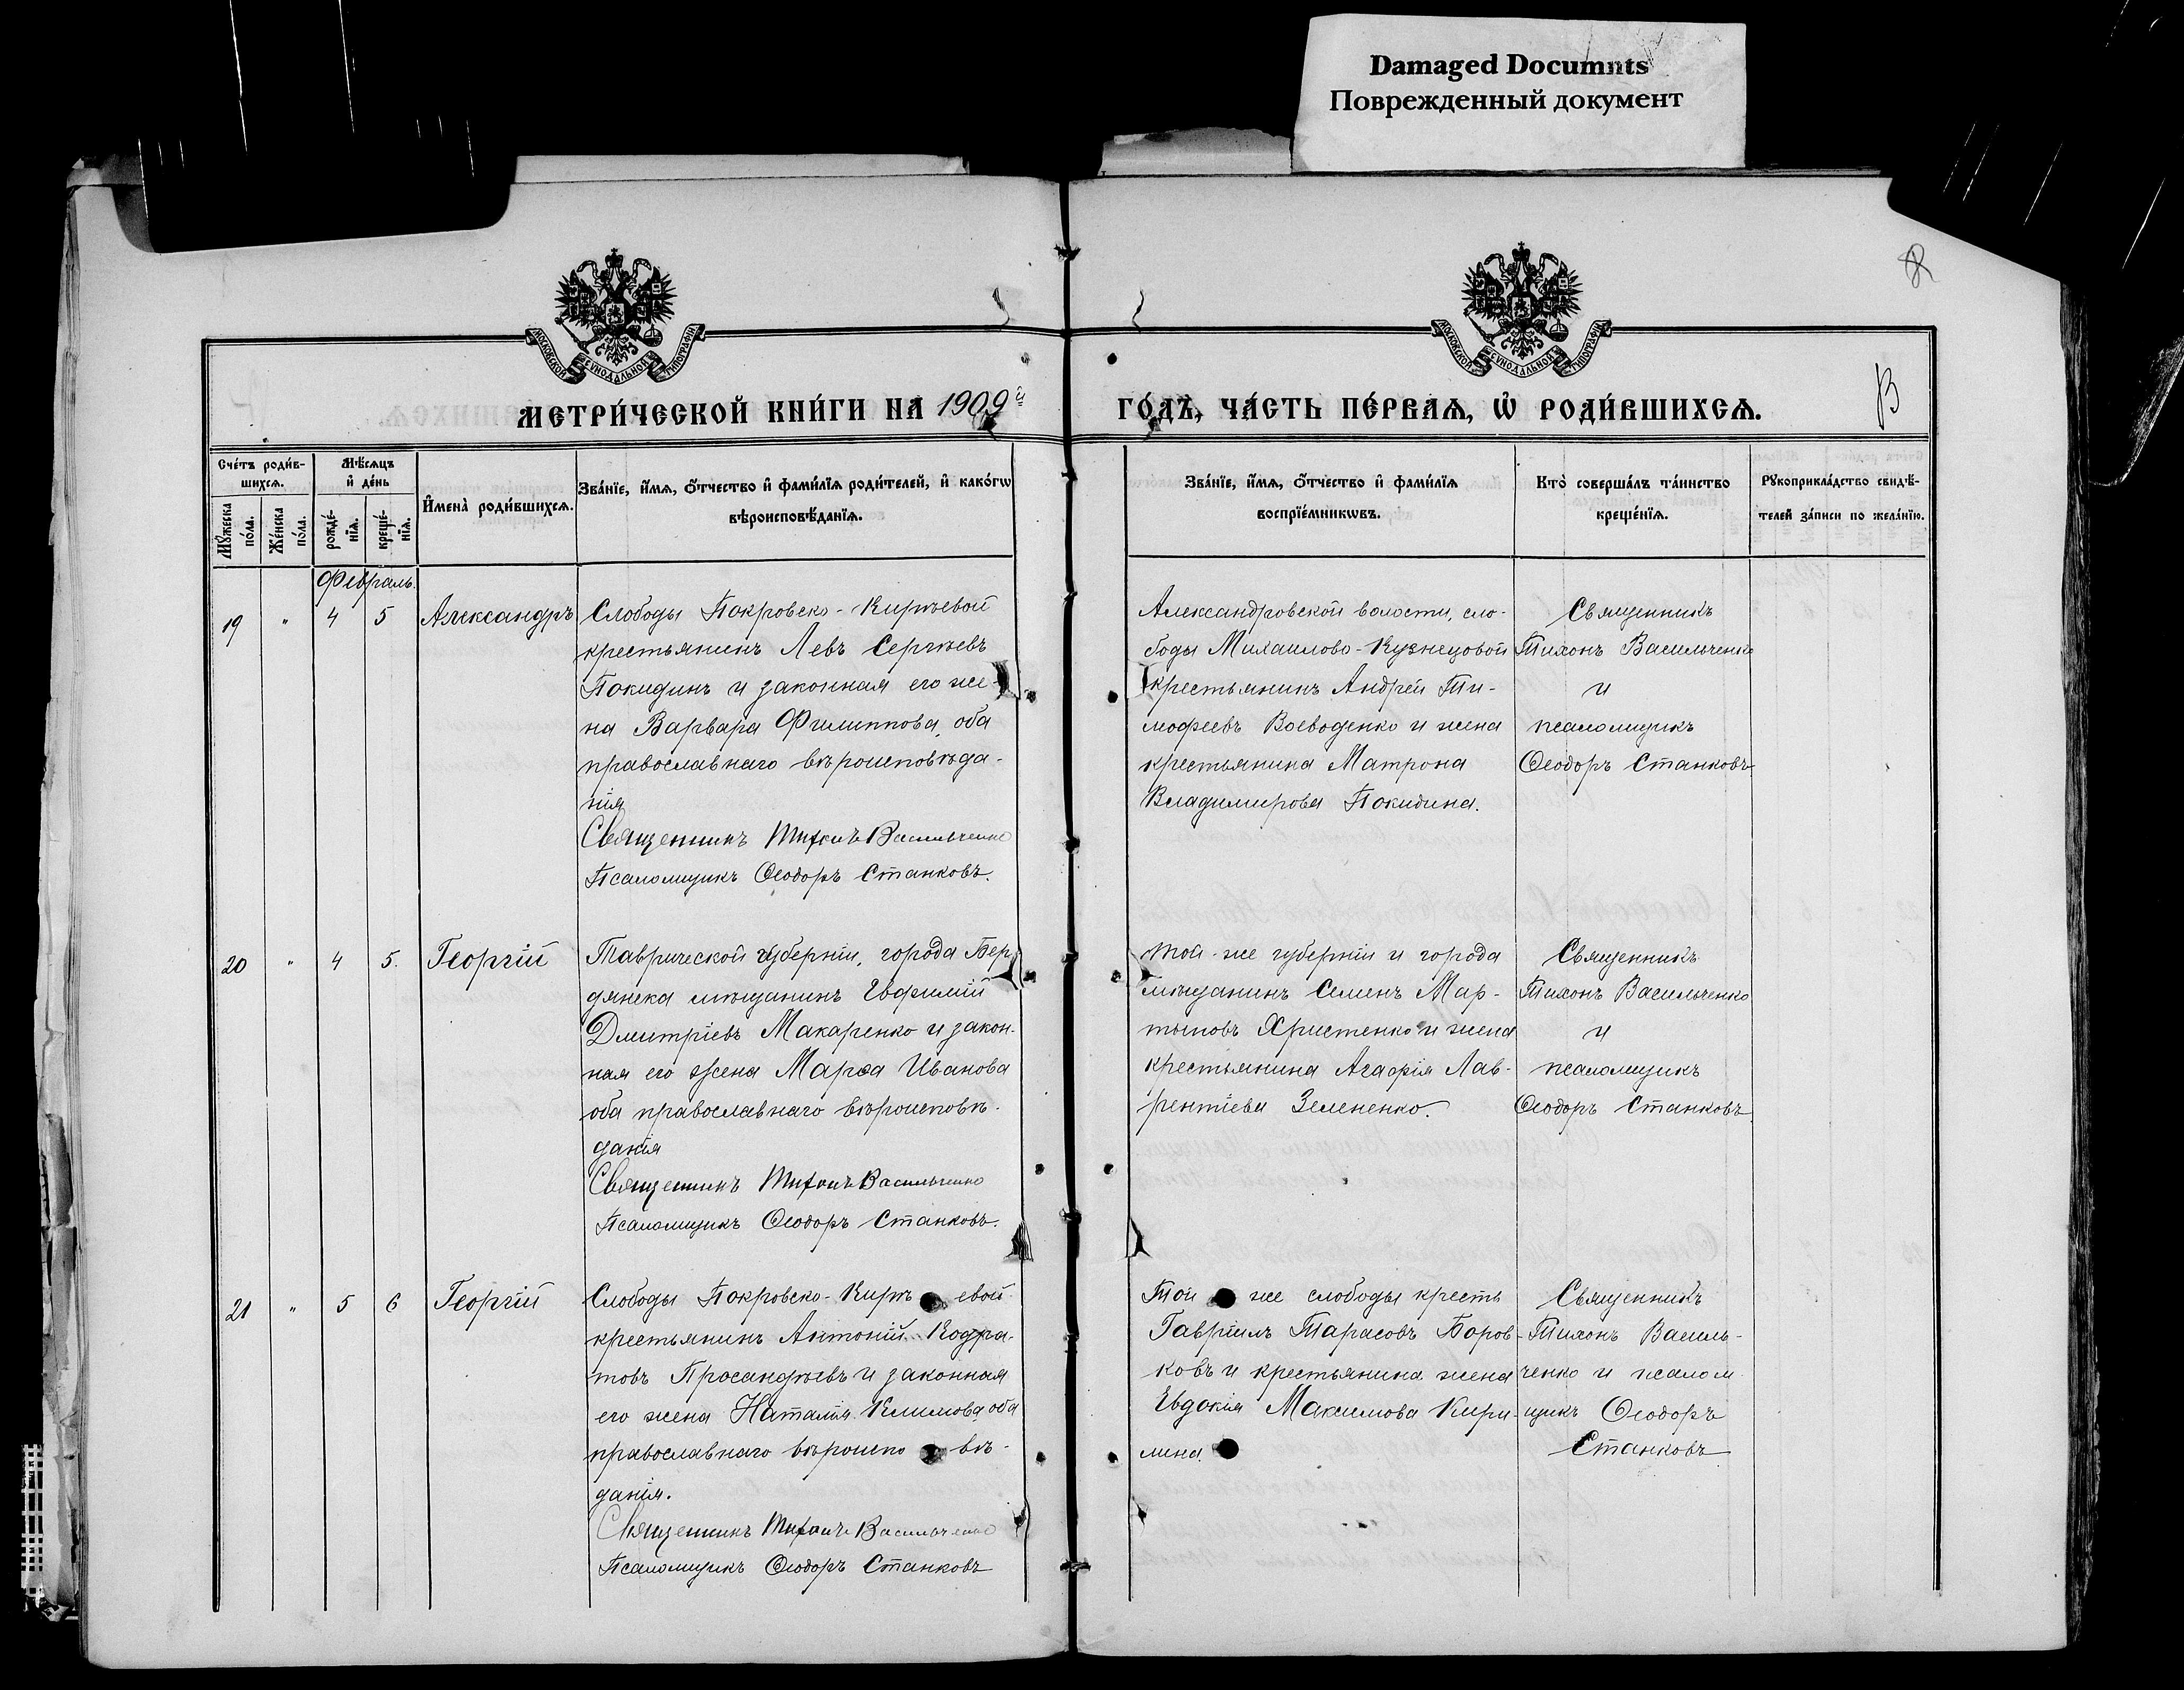 Damaged Documnts
Поврежденный документ
МОСКОВСКОЙ СУНОДАЛЬНОЙ ТИПОГРАФІИ
МОСКОВСКОЙ СУНОДАЛЬНОЙ ТИПОГРАФІИ
МЕТРИ́ЧЕСКОЙ КНИ́ГИ НА 1909й
ГО́ДЪ, ЧА́СТЬ ПЕ́РВАѦ, Ѡ҆ РОДИ́ВШИХСѦ.
В
Сче́тъ роди́в-
шихсѧ.
Мꙋ́жеска по́ла.
Же́нска по́ла.
Мѣ́сѧцъ
и҆ де́нь
рожде́-
нїѧ.
креще́-
нїѧ.
И҆мена̀ роди́вшихсѧ.
Зва́нїе, и҆́мѧ, ѻ҆́тчество и҆ фами́лїѧ роди́телей, и҆ како́гѡ
вѣроисповѣ́данїѧ.
Зва́нїе, и҆́мѧ, ѻ҆́тчество и҆ фами́лїѧ
воспрїе́мникѡвъ.
Кто̀ соверша́лъ та́инство
креще́нїѧ.
Рꙋкоприкла́дство свидѣ́-
телей за́писи по жела́нїю.
Февраль.
19 " 4 5 Александръ
Слободы Покровско-Кирѣевой
крестьянинъ Левъ Сергѣевъ
Покидинъ и законная его же-
на Варвара Филиппова, оба
православнаго вѣроисповѣда-
нія
Священникъ Тихонъ Васильченко
Псаломщикъ Ѳеодоръ Станковъ.
Александровской волости, сло-
боды Михаилово-Кузнецовой
крестьянинъ Андрей Ти-
мофеевъ Воеводенко и жена
крестьянина Матрона
Владимирова Покидина.
Священникъ
Тихонъ Васильченко
и
псаломщикъ
Ѳеодоръ Станковъ
20 " 4 5. Георгій
Таврической губерніи, города Бер-
дянска мѣщанинъ Евфимій
Дмитріевъ Макаренко и закон-
ная его жена Марѳа Иванова
оба православнаго вѣроисповѣ-
данія
Священникъ Тихонъ Васильченко
Псаломщикъ Ѳеодоръ Станковъ.
Той-же губерніи и города
мѣщанинъ Семенъ Мар-
тыновъ Христенко и жена
крестьянина Агафія Лав-
рентіева Зелененко.
Священникъ
Тихонъ Васильченко
и
псаломщикъ
Ѳеодоръ Станковъ
21 " 5 6 Георгій
Слободы Покровско-Кирѣевой
крестьянинъ Антоній Кодра-
товъ Просандѣевъ и законная
его жена Наталія Климова, оба
православнаго вѣроисповѣ-
данія.
Священникъ Тихонъ Васильченко
Псаломщикъ Ѳеодоръ Станковъ
Той же слободы кресть
Гавріилъ Тарасовъ Боров-
ковъ и крестьянина жена
Евдокія Максимова Кири-
лина.
Священникъ
Тихонъ Василь-
ченко и псалом
щикъ Ѳеодоръ
Станковъ